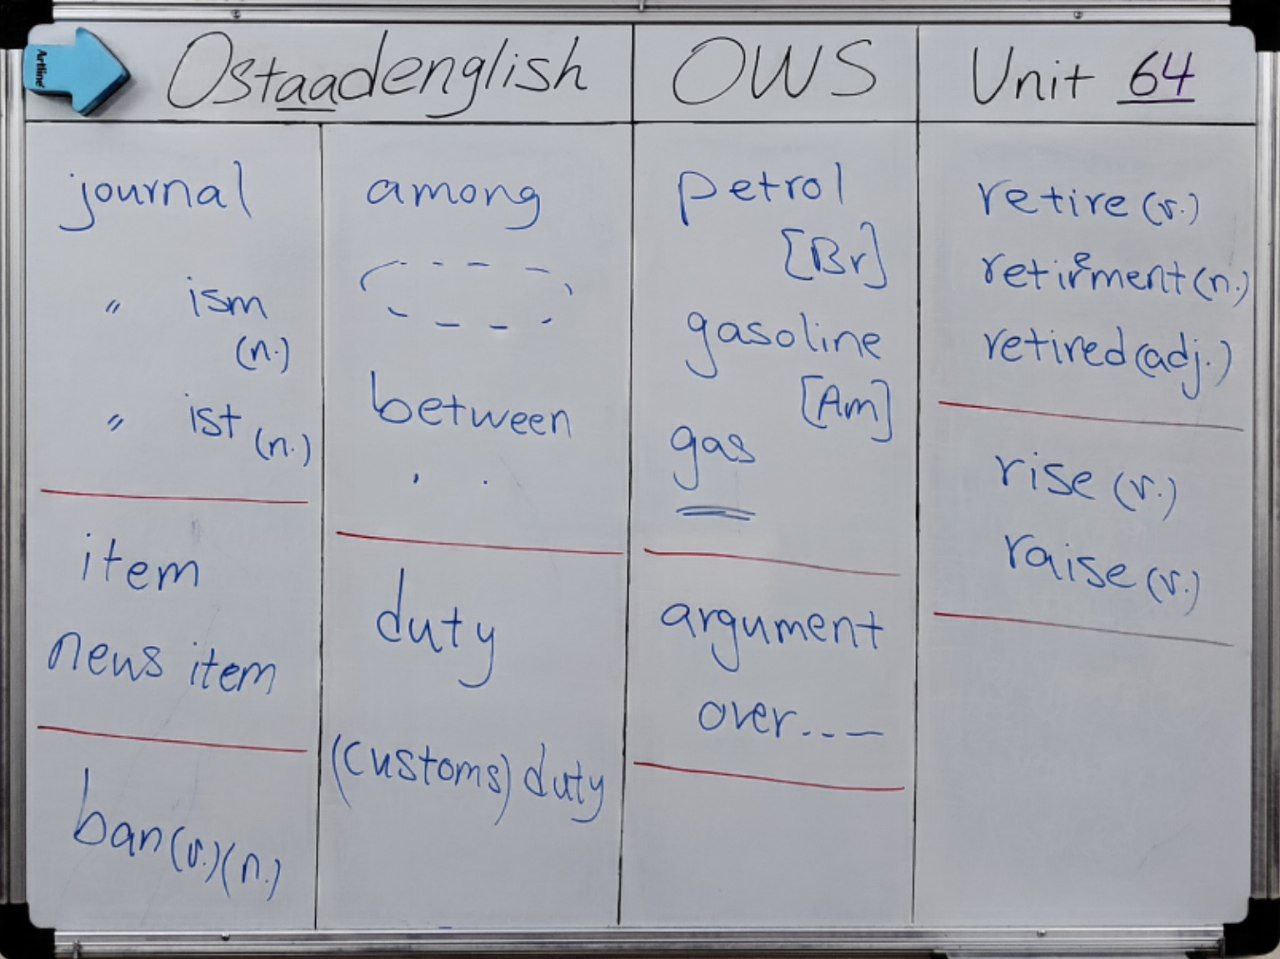 Artline
Ostaadenglish
OWS
Unit 64
journal
〃 ism
(n.)
〃 ist (n.)
item
news item
ban (v.) (n.)
among
between
duty
(customs) duty
petrol
[Br]
gasoline
[Am]
gas
argument
over...—
retire (v.)
retirement (n.)
retired (adj.)
rise (v.)
raise (v.)